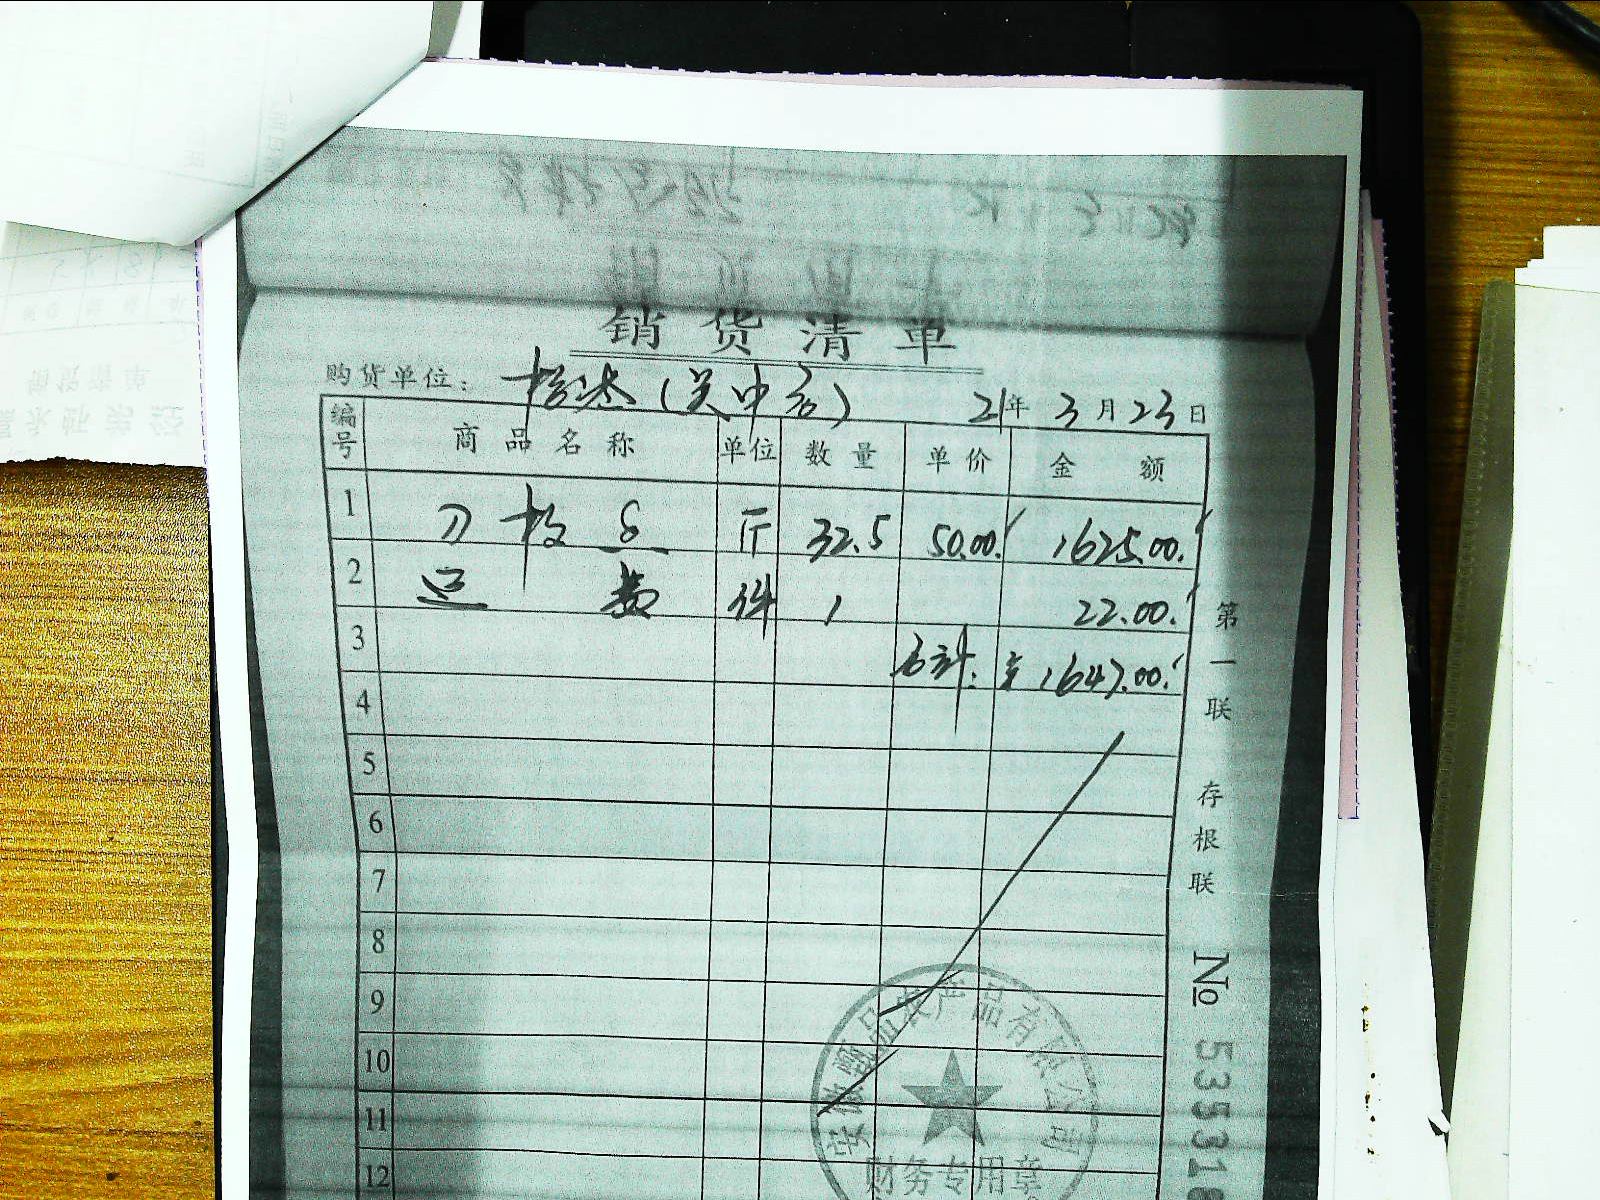 销货清单
购货单位： 21年3月23日
编号 商品名称 单位 数量 单价 金额
1 刀板鱼 斤 32.5 50.00 1625.00
2 运费 件 1 22.00
3 合计：¥1647.00
4
5
6
7
8
9
10
11
12
第一联 存根联
№ 535318
农产品有限公司
财务专用章